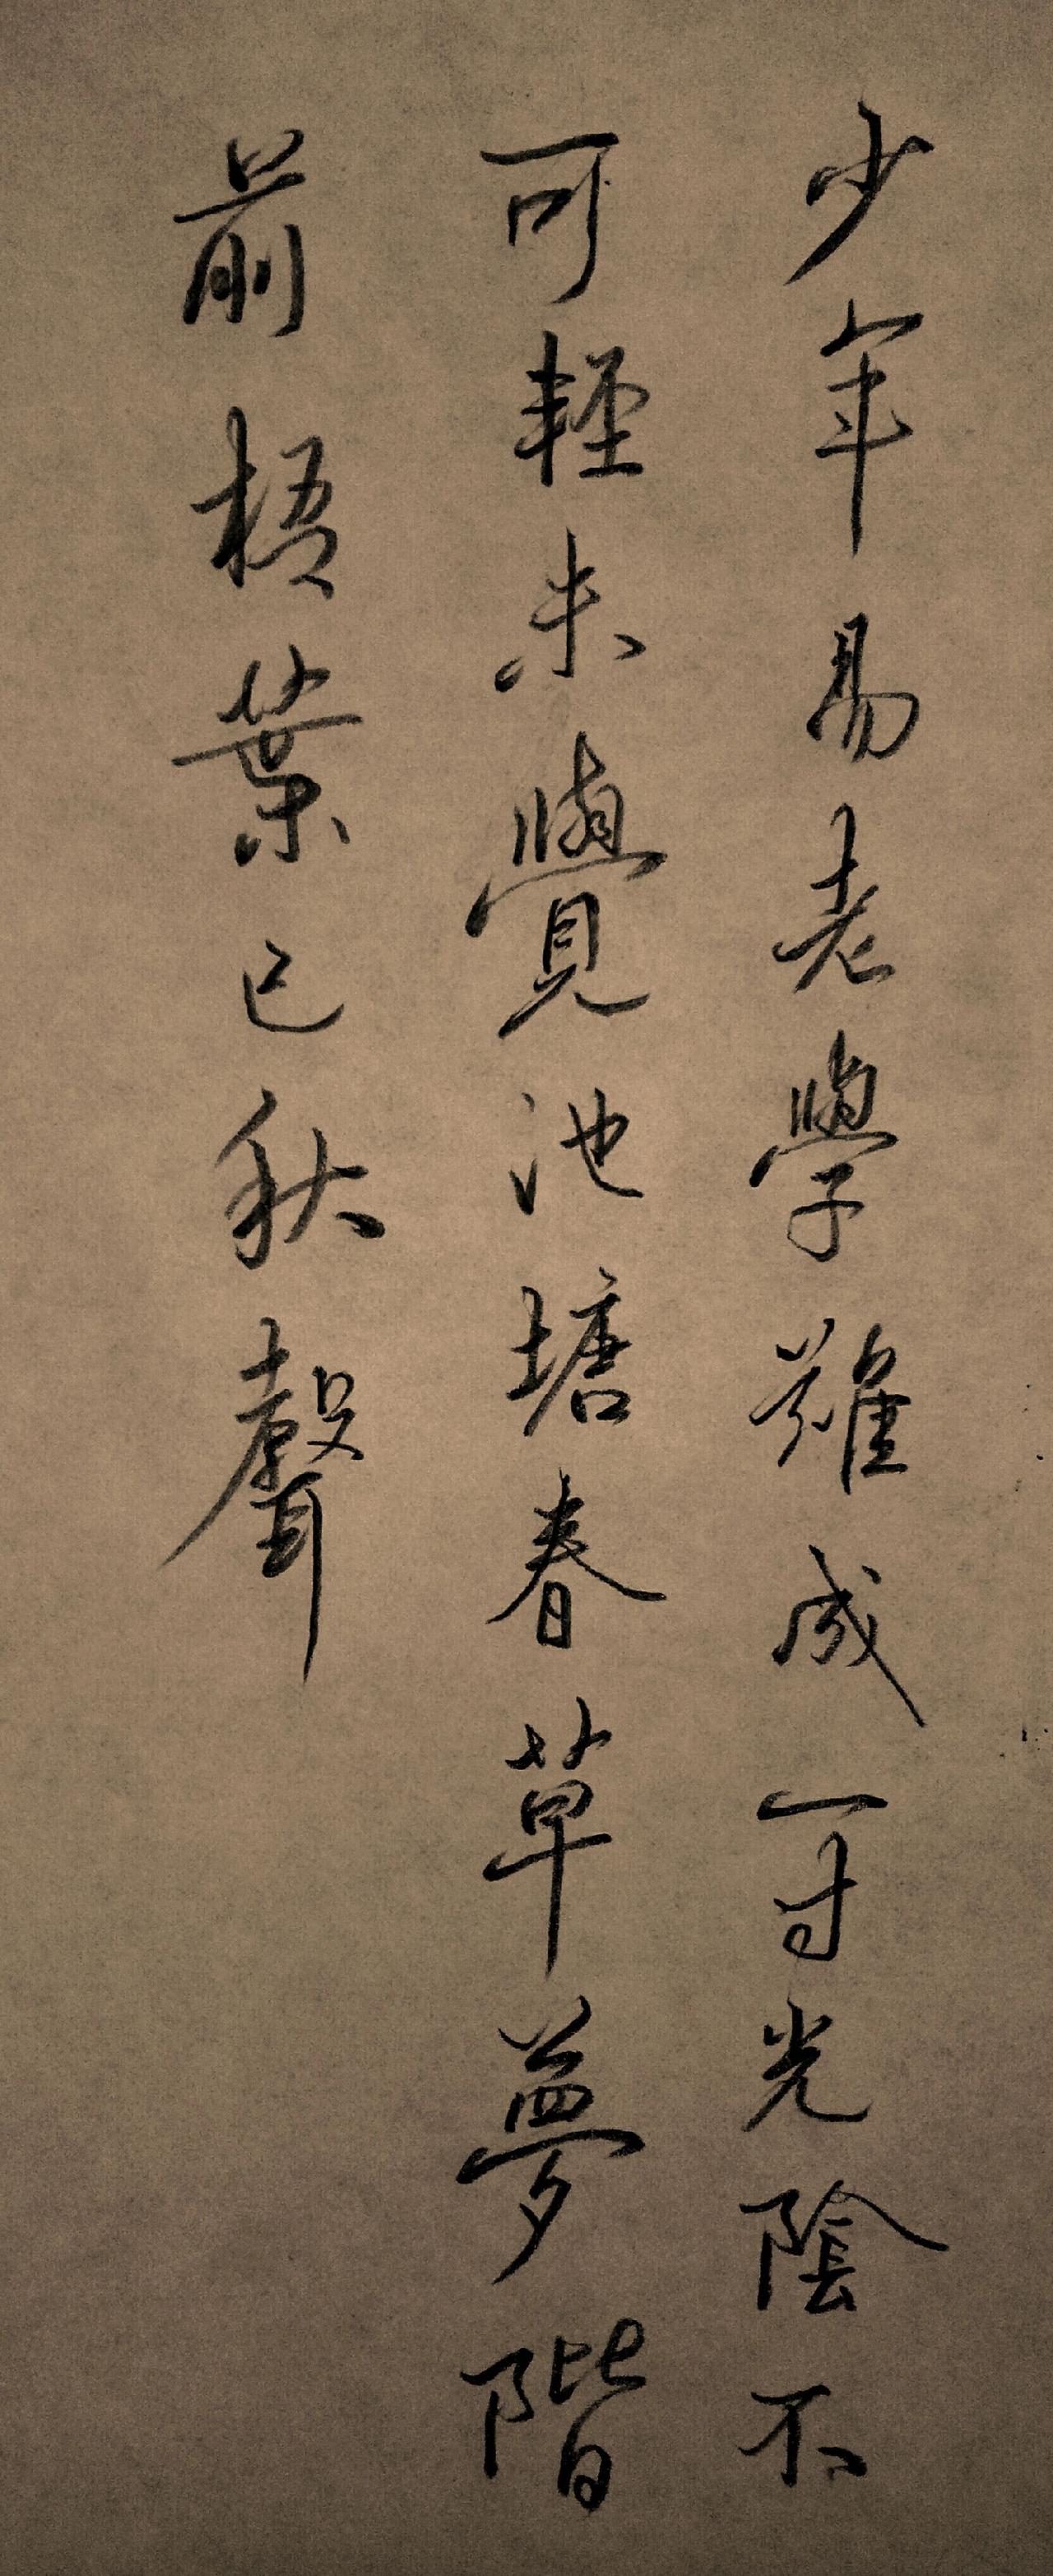 少年易老學難成一寸光陰不
可輕未覺池塘春草夢階
前梧葉已秋聲